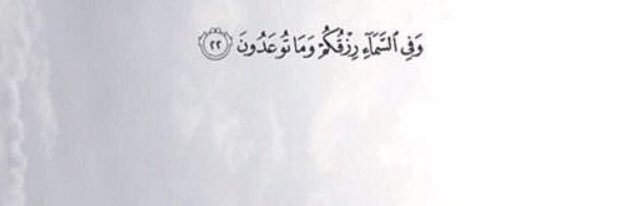 وَفِي ٱلسَّمَآءِ رِزْقُكُمْ وَمَا تُوعَدُونَ ٢٢